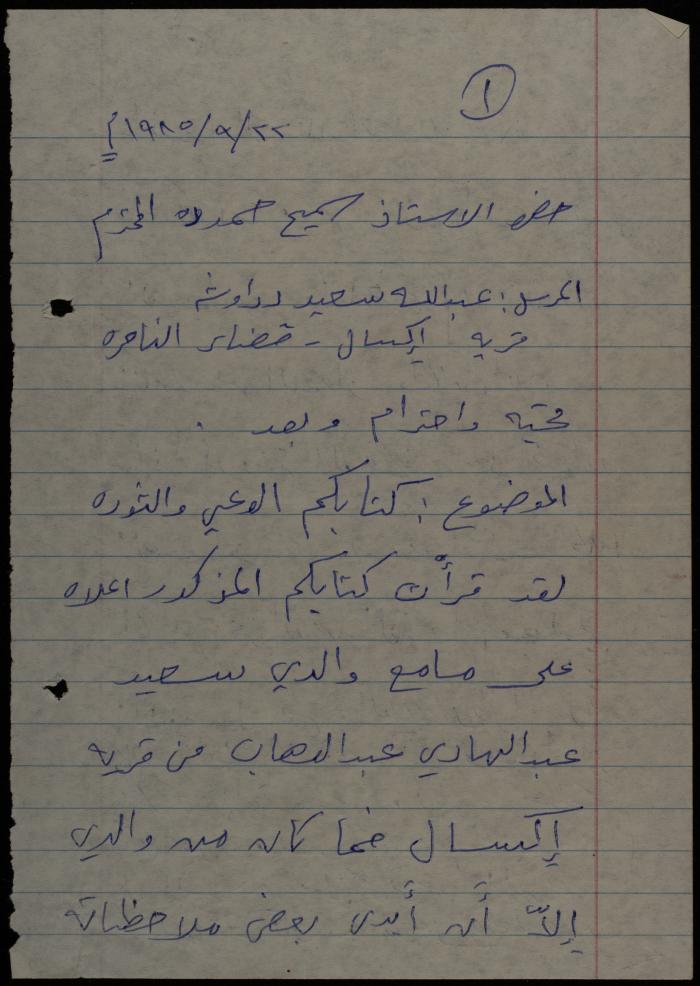 ١
٢٢/٩/١٩٨٥م
حضرة الاستاذ سميح حموده المحترم
المرسل: عبدالله سعيد دراوشه
قريه إكسال - قضاء الناصره
محبّه واحترام وبعد .
الموضوع: كتابكم الوعي والثوره
لقد قرأت كتابكم المذكور اعلاه
على مسامع والدي سعيد
عبدالهادي عبدالوهاب من قريه
إكسال فما كان من والدي
إلاّ أن أبدى بعض ملاحظاته